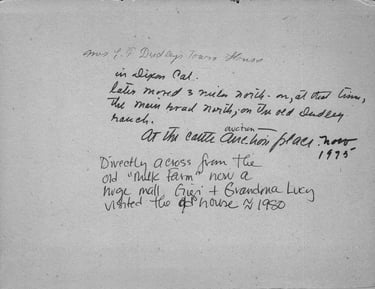 Mrs L. F. Dudleys Town House
in Dixon Cal.
later moved 3 miles north - on, at that time,
the main road north; on the old Dudley
ranch.
auction
At the cattle Auction place. now
1975
Directly across from the
old "Milk Farm" now a
huge mall, + Grandma Lucy
visited the house ≈ 1980